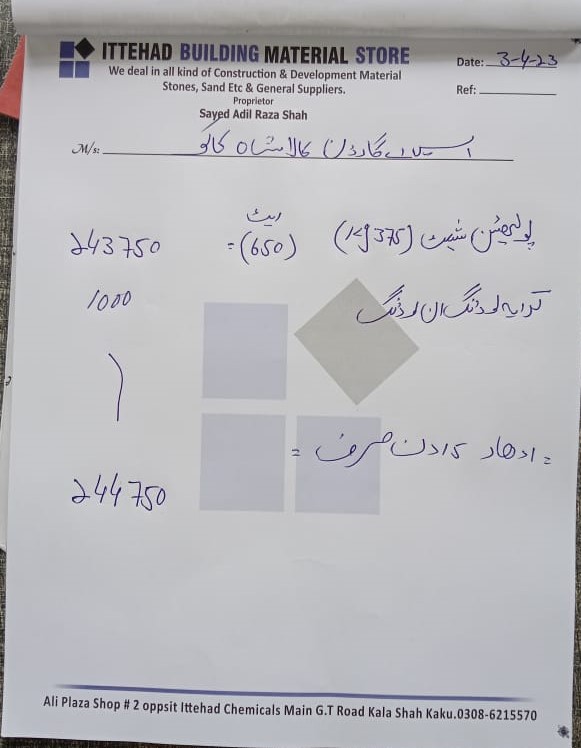 ITTEHAD BUILDING MATERIAL STORE
We deal in all kind of Construction & Development Material
Stones, Sand Etc & General Suppliers.
Proprietor
Sayed Adil Raza Shah
Date: 3-4-23
Ref:
M/s: گارڈن کالا شاہ کاکو
ریٹ
پولیتھین شیٹ (375 Kg) (650) = 243750
کرایہ لوڈنگ ان لوڈنگ 1000
= ادھار 5 دن صرف =
244750
Ali Plaza Shop # 2 oppsit Ittehad Chemicals Main G.T Road Kala Shah Kaku.0308-6215570